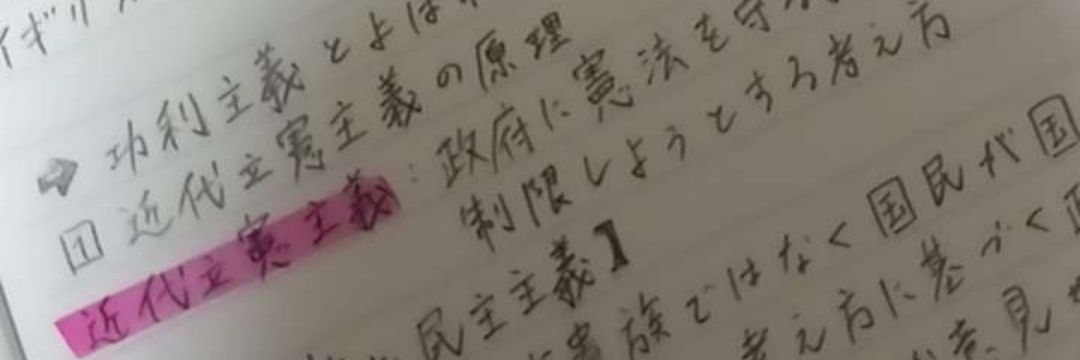 イギリ
➡ 功利主義とよば
1 近代立憲主義の原理
近代立憲主義：政府に憲法を守
制限しようとする考え方
民主主義】
貴族ではなく国民が国
考え方に基づく
意見